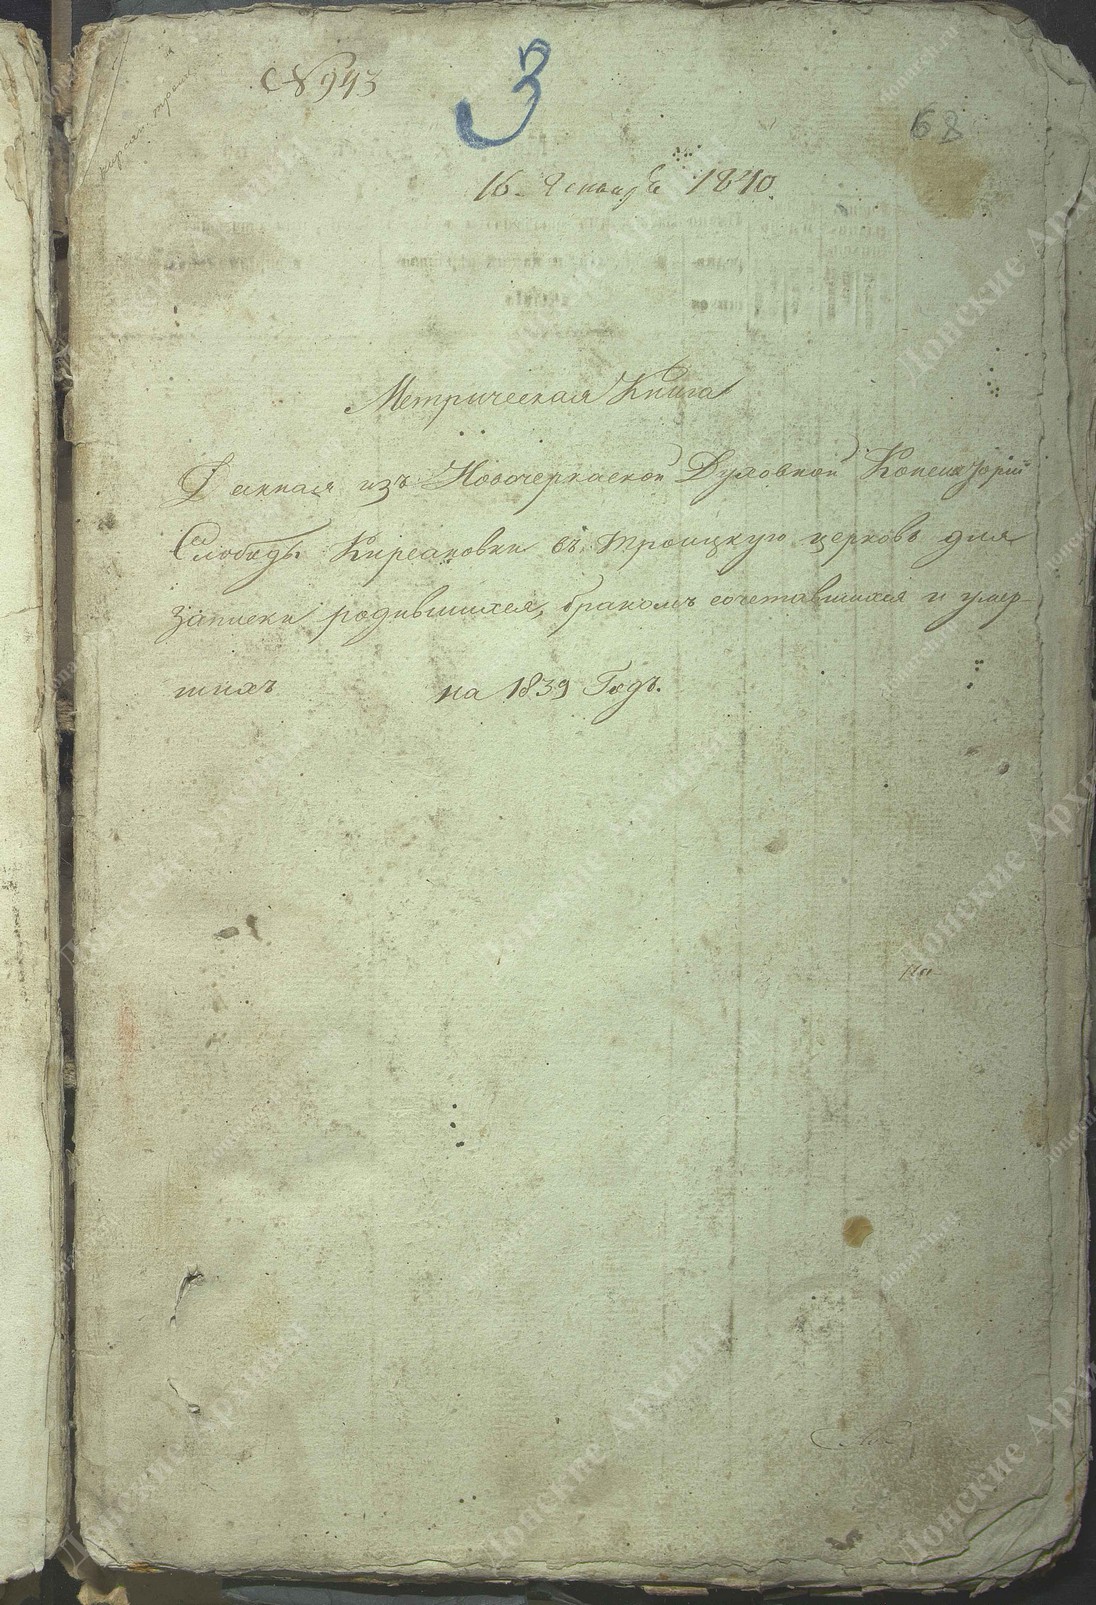 № 943
3
68
16. Генваря 1840.
Метрическая Книга
Данная изъ Новочеркаской Духовной Консисторіи
Слободы Кирсановки въ Троицкую церковь для
записки родившихся, бракомъ сочетавшихся и умер-
шихъ на 1839 Годъ.